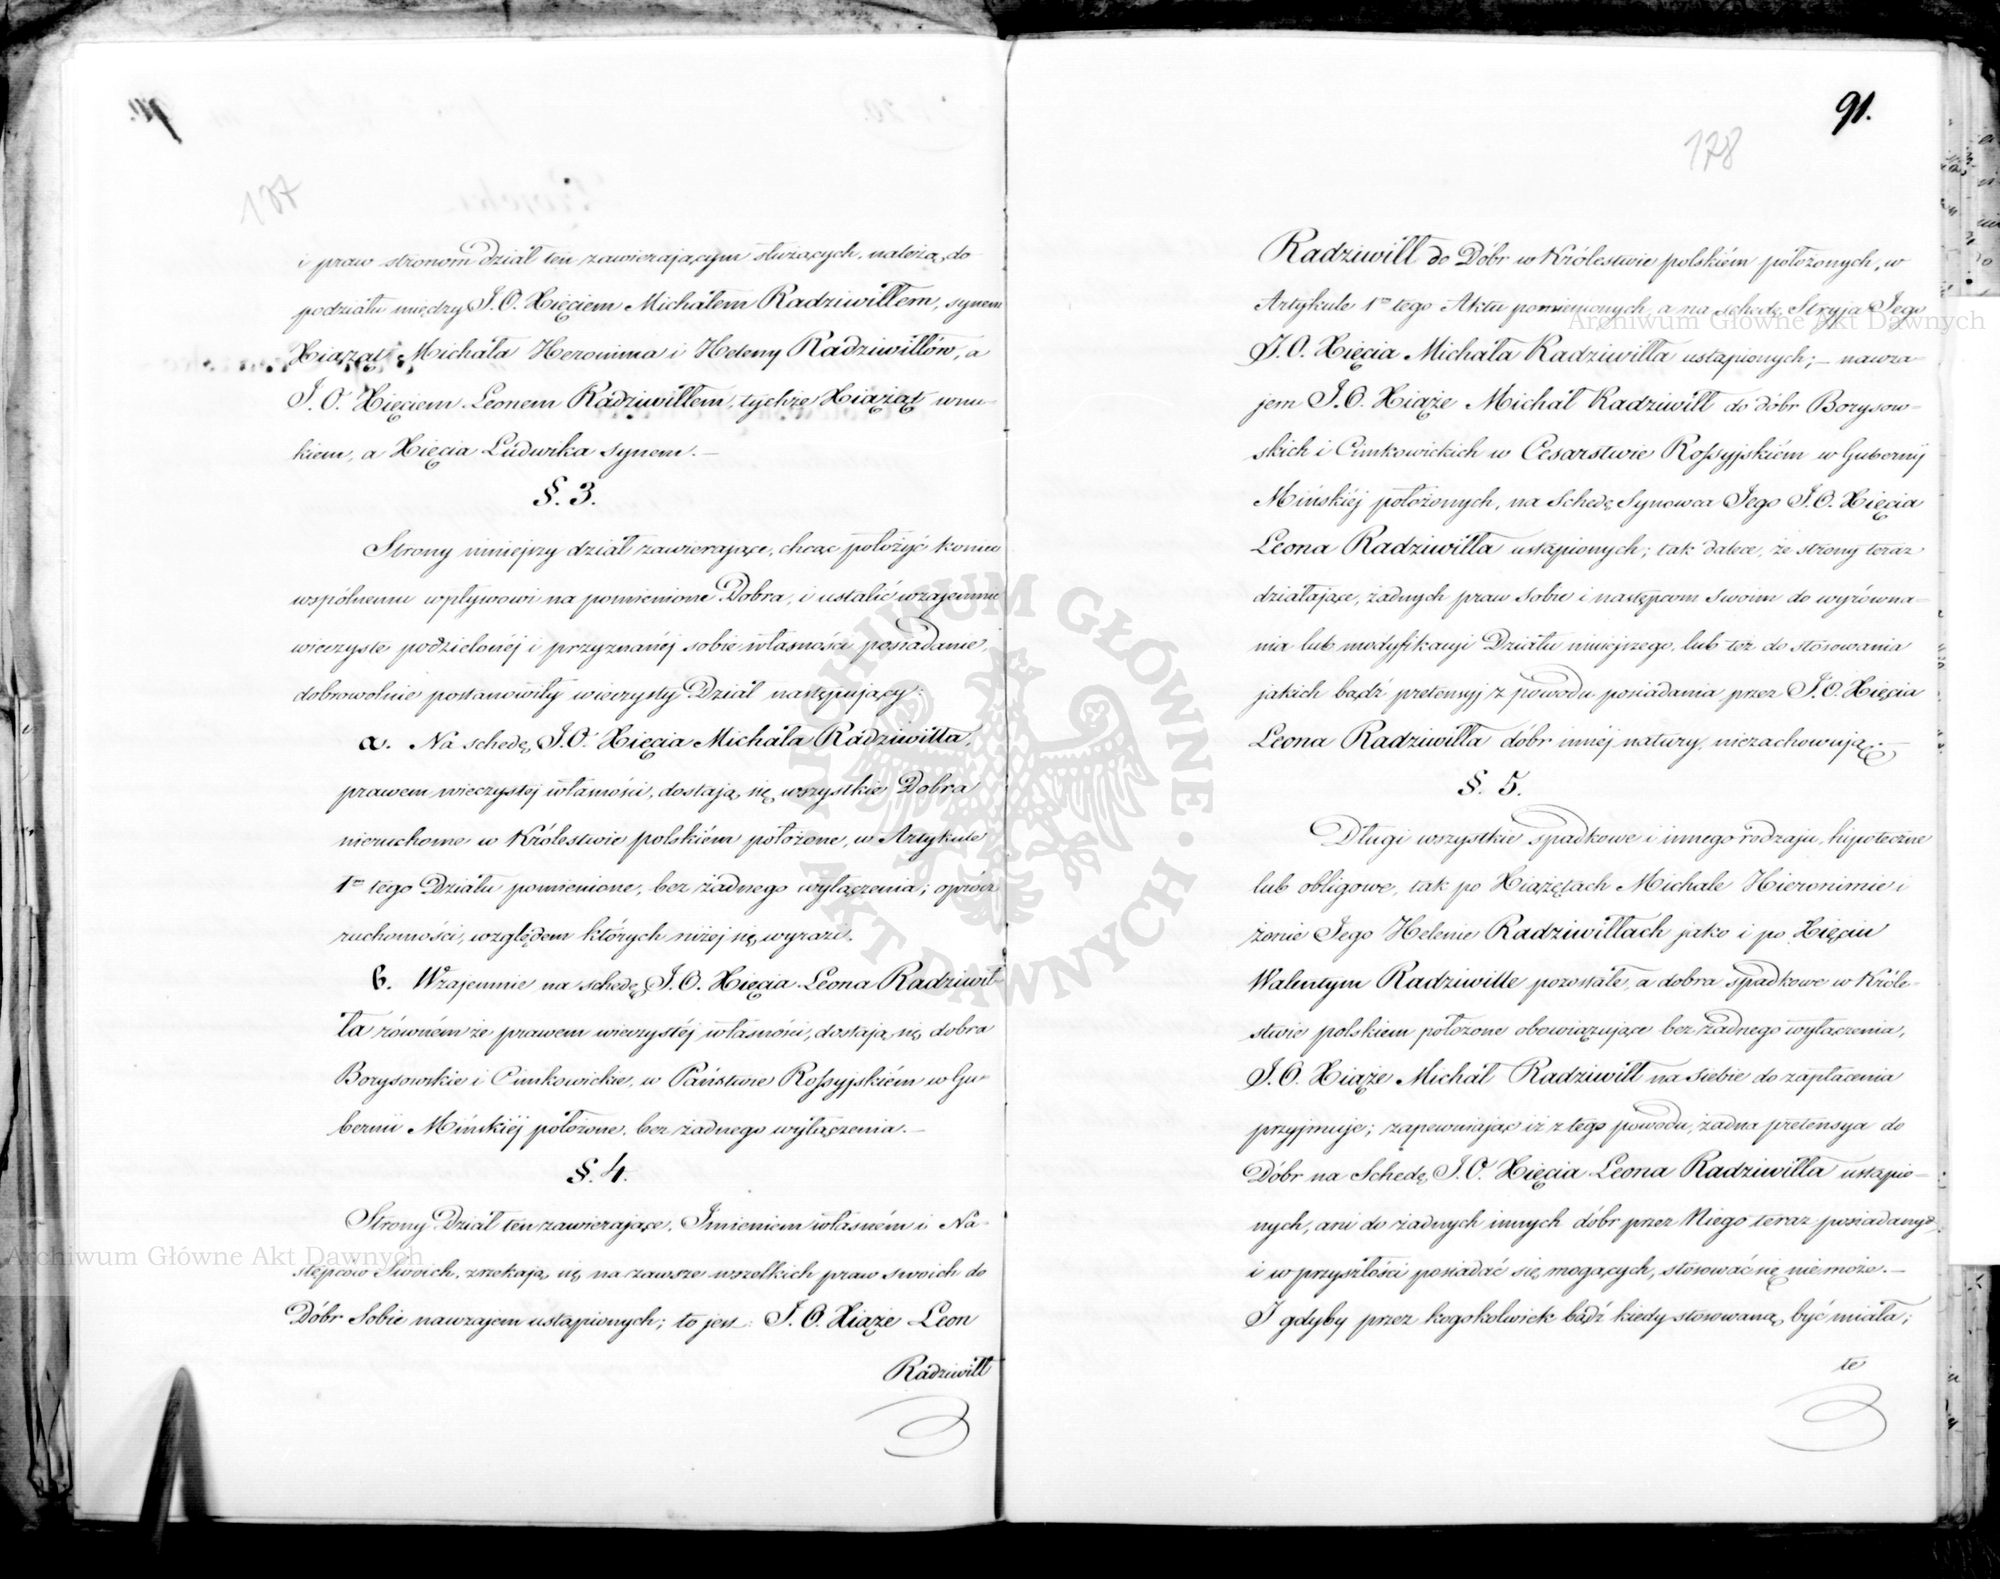 177
i praw stronom dział ten zawierającym służących, należą, do
podziału między J. O. Xięciem Michałem Radziwiłłem, synem
Xiążąt Michała Heronima i Heleny Radziwiłłów, a
J. O. Xięciem Leonem Radziwiłłem, tychże Xiążąt wnu-
kiem, a Xięcia Ludwika synem. —
§. 3.
Strony niniejszy dział zawierające, chcąc położyć koniec
wspólnemu wpływowi na pomienione Dobra, i ustalić wzajemnie
wieczyste podzielonéj i przyznanéj sobie własności posiadanie,
dobrowolnie postanowiły wieczysty Dział następujący:
a. Na schedę J. O. Xięcia Michała Radziwiłła,
prawem wieczystej własności, dostają się wszystkie Dobra
nieruchome w Królestwie polskiém położone, w Artykule
1m tego Działu pomienione, bez żadnego wyłączenia; oprócz
ruchomości, względem których niżej się wyrazi.
b. Wzajemnie na schedę J. O. Xięcia Leona Radziwił-
ła równém że prawem wieczystéj własności, dostają się dobra
Borysowskie i Cimkowickie, w Państwie Rossyjskiém w Gu-
bernii Mińskiéj położone, bez żadnego wyłączenia. —
§. 4.
Strony Dział ten zawierające, Imieniem własném i Na-
stępców Swoich, zrzekają się na zawsze wszelkich praw swoich do
Dóbr Sobie nawzajem ustąpionych; to jest: J. O. Xiąże Leon
Radziwiłł
91.
178
Radziwiłł do Dóbr w Królestwie polskiém położonych, w
Artykule 1m tego Aktu pomienionych, a na schedę Stryja Jego
J. O. Xięcia Michała Radziwiłła ustąpionych; — nawza-
jem J. O. Xiąże Michał Radziwiłł do dóbr Borysow-
skich i Cimkowickich w Cesarstwie Rossyjskiém w Gubernij
Mińskiéj położonych, na Schedę Synowca Jego J. O. Xięcia
Leona Radziwiłła ustąpionych; tak dalece, że strony teraz
działające, żadnych praw sobie i następcom swoim do wyrówna-
nia lub modyfikacyi Działu niniejszego, lub też do stosowania
jakich bądź pretensyj z powodu posiadania przez J. O. Xięcia
Leona Radziwiłła dóbr innéj natury, niezachowują. —
§. 5.
Długi wszystkie spadkowe i innego rodzaju, hipoteczne
lub obligowe, tak po Xiążętach Michale Hieronimie i
żonie Jego Helenie Radziwiłłach jako i po Xięciu
Walentym Radziwille pozostałe, a dobra spadkowe w Króle-
stwie polskiem położone obowiązujące bez żadnego wyłączenia,
J. O. Xiąże Michał Radziwiłł na siebie do zapłacenia
przyjmuje; zapewniając iż z tego powodu, żadna pretensya do
Dóbr na Schedę J. O. Xięcia Leona Radziwiłła ustąpio-
nych, ani do żadnych innych dóbr przez Niego teraz posiadanych,
i w przyszłości posiadać się mogących, stosować się nie może. —
I gdyby przez kogokolwiek bądź kiedy stosowaną być miała;
te
Archiwum Główne Akt Dawnych
Archiwum Główne Akt Dawnych
ARCHIWUM GŁÓWNE AKT DAWNYCH